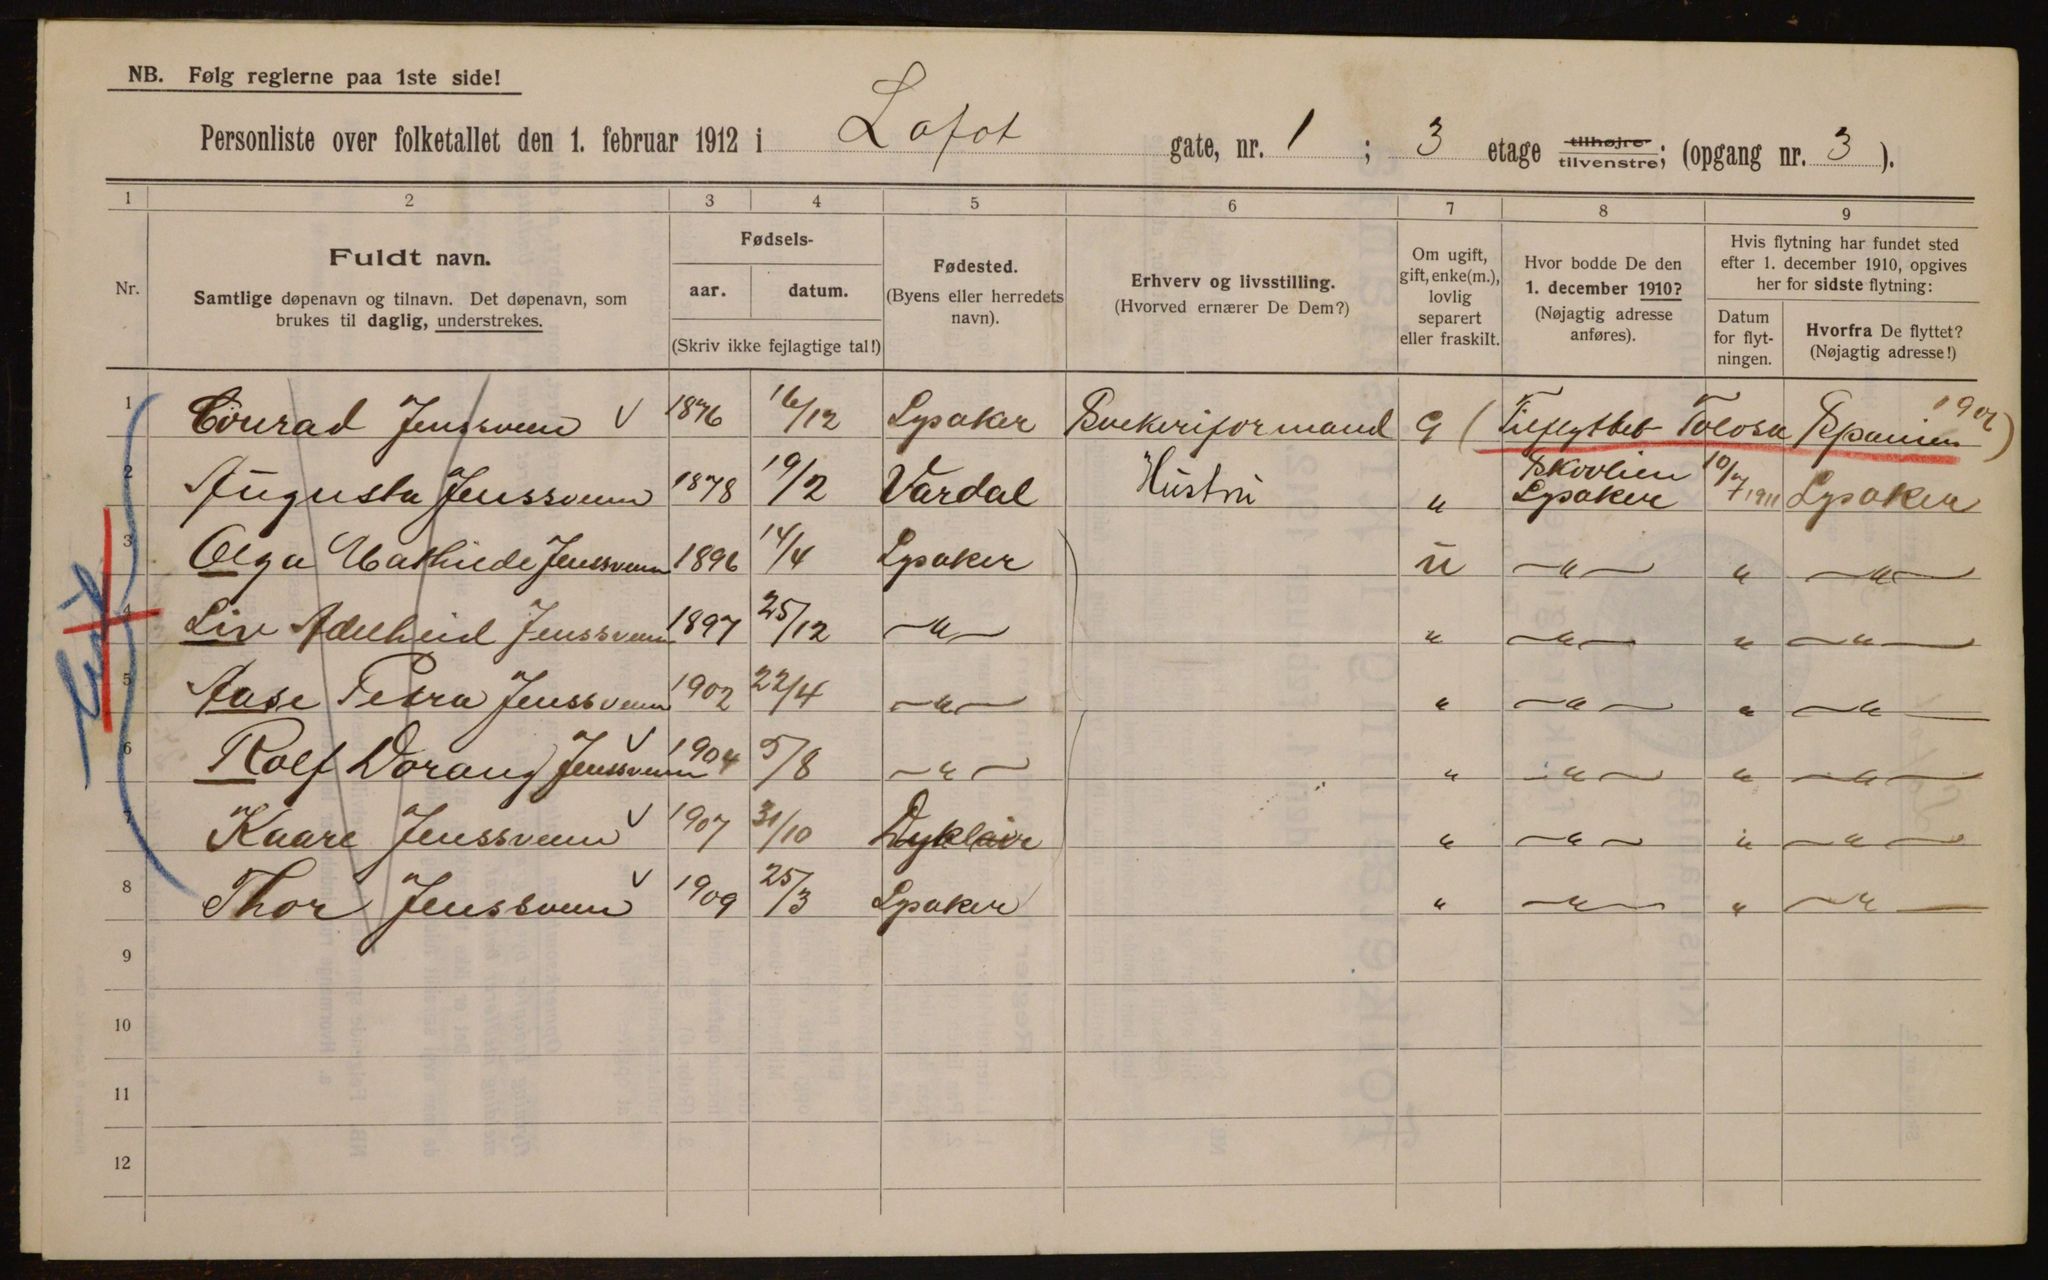 NB. Følg reglerne paa 1ste side!
Personliste over folketallet den 1. februar 1912 i Lofot gate, nr. 1 ; 3 etage tilhøjre tilvenstre; (opgang nr. 3 ).
1 2 3 4 5 6 7 8 9
Nr.
Fuldt navn.
Samtlige døpenavn og tilnavn. Det døpenavn, som
brukes til daglig, understrekes.
Fødsels-
aar. datum.
(Skriv ikke fejlagtige tal!)
Fødested.
(Byens eller herredets
navn).
Erhverv og livsstilling.
(Hvorved ernærer De Dem?)
Om ugift,
gift, enke(m.),
lovlig
separert
eller fraskilt.
Hvor bodde De den
1. december 1910?
(Nøjagtig adresse
anføres).
Hvis flytning har fundet sted
efter 1. december 1910, opgives
her for sidste flytning:
Datum
for flyt-
ningen.
Hvorfra De flyttet?
(Nøjagtig adresse!)
1 Conrad Jenssveen V 1876 16/12 Lysaker G (Tilflyttet Tolosa Spanien )
2 Augusta Jenssveen 1878 19/2 Vardal Hustru " Skovlien Lysaker 10/7 1911 Lysaker
3 Olga Mathilde Jenssveen 1896 14/4 Lysaker u — " — " — " —
4 Liv Adelheid Jenssveen 1897 25/12 — " — " — " — " — " —
5 Aase Petra Jenssveen 1902 22/4 — " — " — " — " — " —
6 Rolf Jenssveen V 1904 5/8 — " — " — " — " — " —
7 Kaare Jenssveen V 1907 31/10 " — " — " — " —
8 Thor Jenssveen V 1909 25/3 Lysaker " — " — " — " —
9
10
11
12